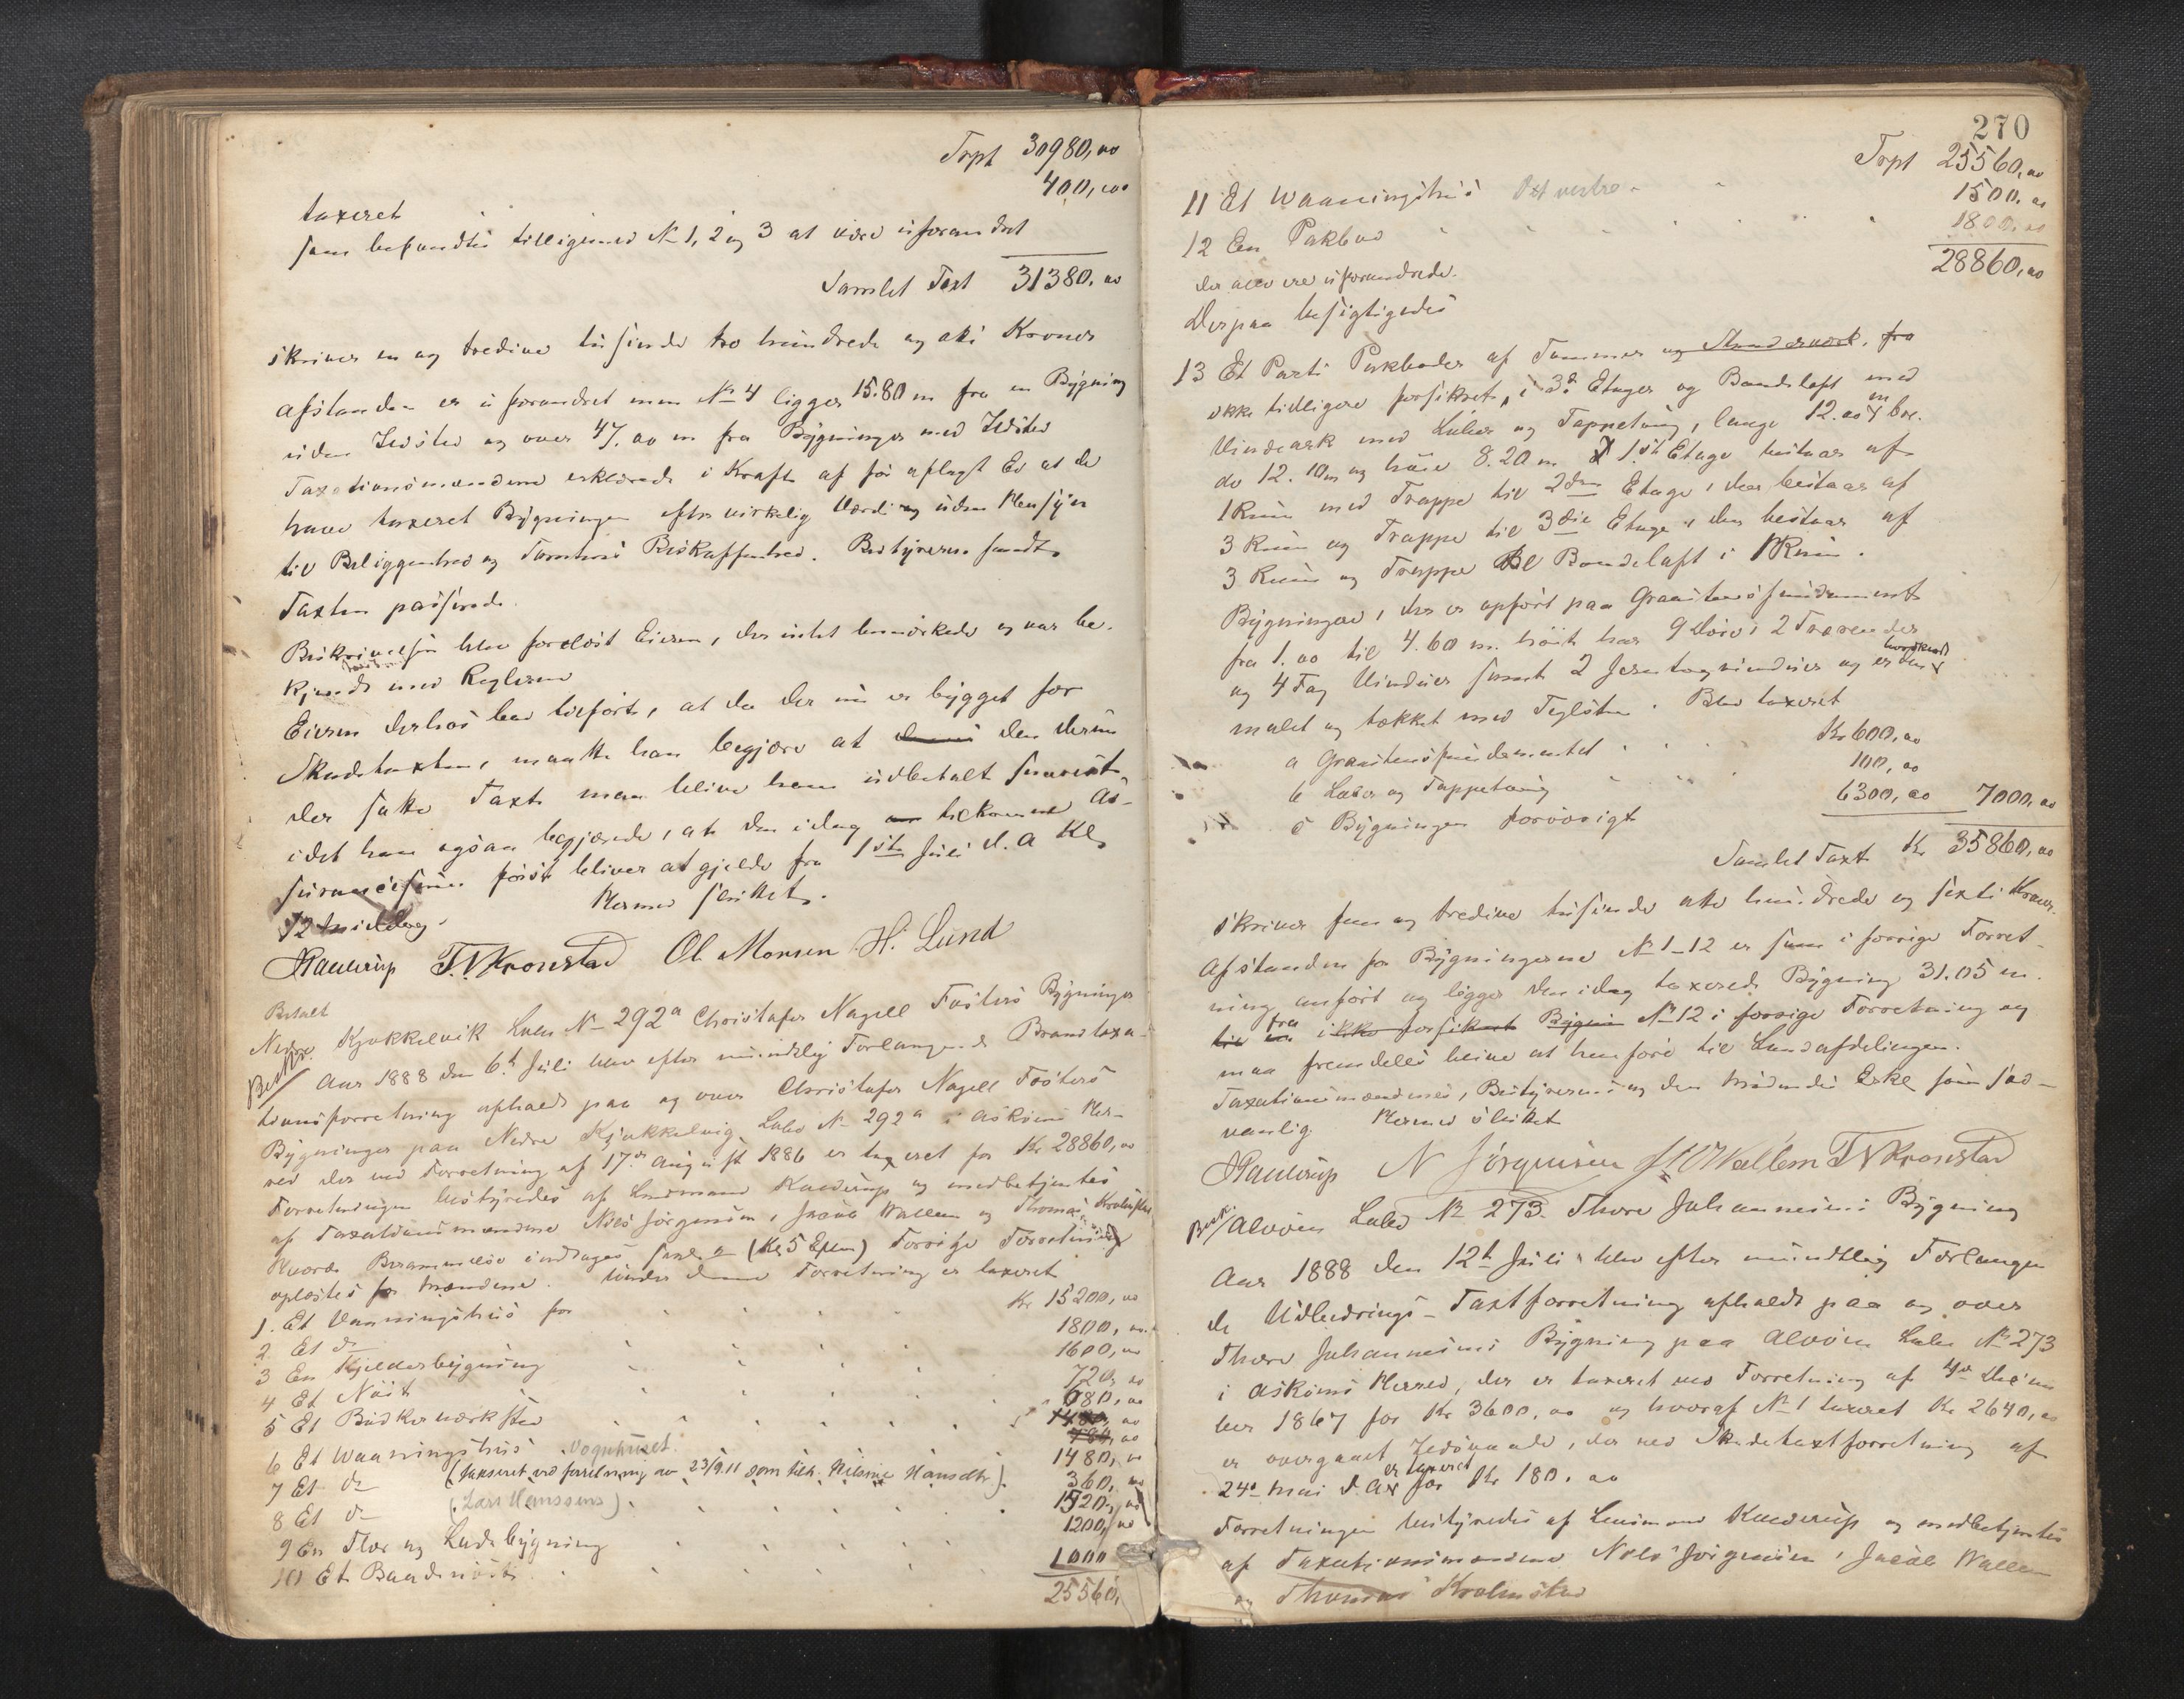 Trpt 30980,00
taxeret 400,00
som befandtes tilligemed No 1, 2 og 3 at være uforandret
Samlet Taxt 31380,00
skriver en og tredive tusinde tre hundrede og otti Kroner
Afstanden er uforandret men No 4 ligger 15.80 m fra en Bygning
uden Ildsted og over 47,00 m fra Bygninger med Ildsted
Taxationsmændene erklærede i Kraft af før aflagt Ed at de
have taxeret Bygningen efter virkelig Værdi og uden Hensyn
til Beliggenhed og Tomtens Beskaffenhed. Bestyreren fandt
Taxten passende.
Beskrivelsen blev forelæst Eieren, der intet bemærkede og var be-
kjendt med Reglerne
Eieren derhos lod tilføre, at da der nu er bygget for
Skadetaxten, maatte han begjære at den derunder
satte Taxt maa blive ham udbetalt snarest,
idet han ogsaa begjærede, at den idag tilkomne As-
surancesum først bliver at gjelde fra 1ste Juli d. A Kl
12 Middag.
Hermed sluttet.
T. N Kronstad Ol. Monsen H. Lund
Betalt
Nedre Kjøkkelvik Løbe No 292a Christofer Nagell Fosters Bygninger
Besk.
Aar 1888 den 6te Juli blev efter mundtlig Forlangende Brandtaxa-
tionsforretning afholdt paa og over Christofer Nagell Fosters
Bygninger paa Nedre Kjøkkelvig Løbe No 292a i Askøens Her-
red der ved Forretning af 17de August 1886 er taxeret for Kr 28860,00
Forretningen bestyredes af Lensmand og medbetjentes
af Taxationsmændene Nils Jørgensen, Jacob Wallem og Thomas Kronstad
Hvorom Berammelse indtages saal. (Kr 5 Eftm) Forrige Forretning
oplæstes for Mændene. Under denne Forretning er taxeret
1. Et Vaaningshus for Kr 15200,00
2 Et do 1800,00
3 En Kjelderbygning 1600,00
4 Et Nøst 720,00
5 Et Bødkerværksted 680,00
6 Et Waaningshus Vognhuset. 1480,00
7 Et do (taxseret ved forretning av 23/9.11 som tilh. Nilsine Hansdtr.) 360,00
8 Et do (Lars Hanssens) 1520,00
9 En Flor og Ladebygning 1200,00
10 Et Baadnøst 1000
25560,
270
Trpt 25560,00
11 Et Waaningshus Det vestre 1500,00
12 En Pakbod 1800,00
28860,00
der alle ere uforandrede.
Derpaa besigtigedes
13 Et Parti Pakboder af Tømmer og Stenderværk, fra
ikke tidligere forsikret, i 3de Etager og Bandeloft med
Vindeark med Luker og Tappetøug, lange 12.00 m, bre-
de 12.10 m og høie 8.20 m 1ste Etage bestaar af
1 Rum med Trappe til 2den Etage, der bestaar af
3 Rum og Trappe til 3die Etage, der bestaar af
3 Rum og Trappe til Bandeloft i 1 Rum.
Bygningen, der er opført paa Graastensfundament
fra 1.00 til 4.60 m. høit har 9 Døre, 2 Fag
og 4 Fag Vinduer samt 2 Jerntagvinduer og er den
malet og tækket med Teglsten. Blev taxeret
a Graastensfundamentet Kr 600,00
b Luker og Tappetøug 100,00
c Bygningen forøvrigt 6300,00 7000,00
Samlet Taxt Kr. 35860,00
skriver fem og tredive tusinde otte hundrede og sexti Kroner.
Afstanden for Bygningerne No 1-12 er som i forrige Forret-
ning anført og ligger den idag taxerede Bygning 31.05 m.
fra ikke forsikret Bygning No 12 i forrige Forretning og
maa fremdeles blive at henføre til Landafdelingen.
Taxationsmændenes, Bestyrerens og den tilstedes Erkl som sæd-
vanlig. Hermed sluttet
N Jørgensen J. O Wallem T N Kronstad
Besk. Alvøen Løbe No 273 Thore Johannesens Bygning
Aar 1888 den 12te Juli blev efter mundtlig Forlangen
de Udbedrings-Taxtforretning afholdt paa og over
Thore Johannesens Bygning paa Alvøen Løbe No 273
i Askøens Herred, der er taxeret ved Forretning af 4de Decem
ber 1867 for Kr 3600,00 og hvoraf No 1 taxeret Kr 2640,00
er overgaaet Ildsvaade, der ved Skadetaxtforretning af
24de Mai d. A. er taxeret for Kr 180.00
Forretningen bestyredes af Lensmand og medbetjentes
af Taxationsmændene Nils Jørgensen, Jacob Wallem
og Thomas Kronstad